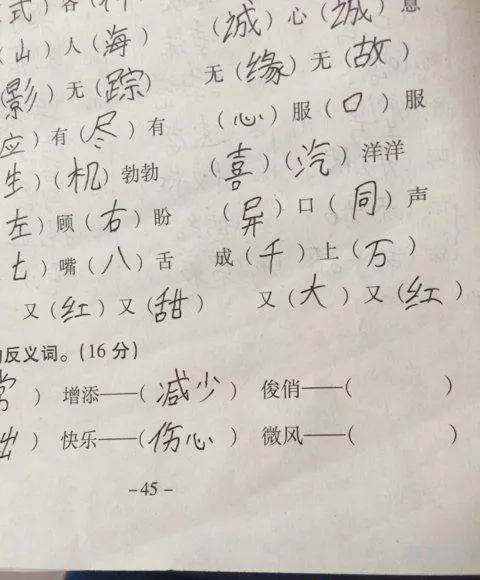 式）各（样
（诚）心（诚）意
（山）人（海）
（影）无（踪） 无（缘）无（故）
应）有（尽）有 （心）服（口）服
生）（机）勃勃 （喜）（汽）洋洋
左）顾（右）盼 （异）口（同）声
七）嘴（八）舌 成（千）上（万）
又（红）又（甜） 又（大）又（红）
反义词。(16分)
常） 增添——（减少） 俊俏——（ ）
出） 快乐——（伤心） 微风——（ ）
-45-